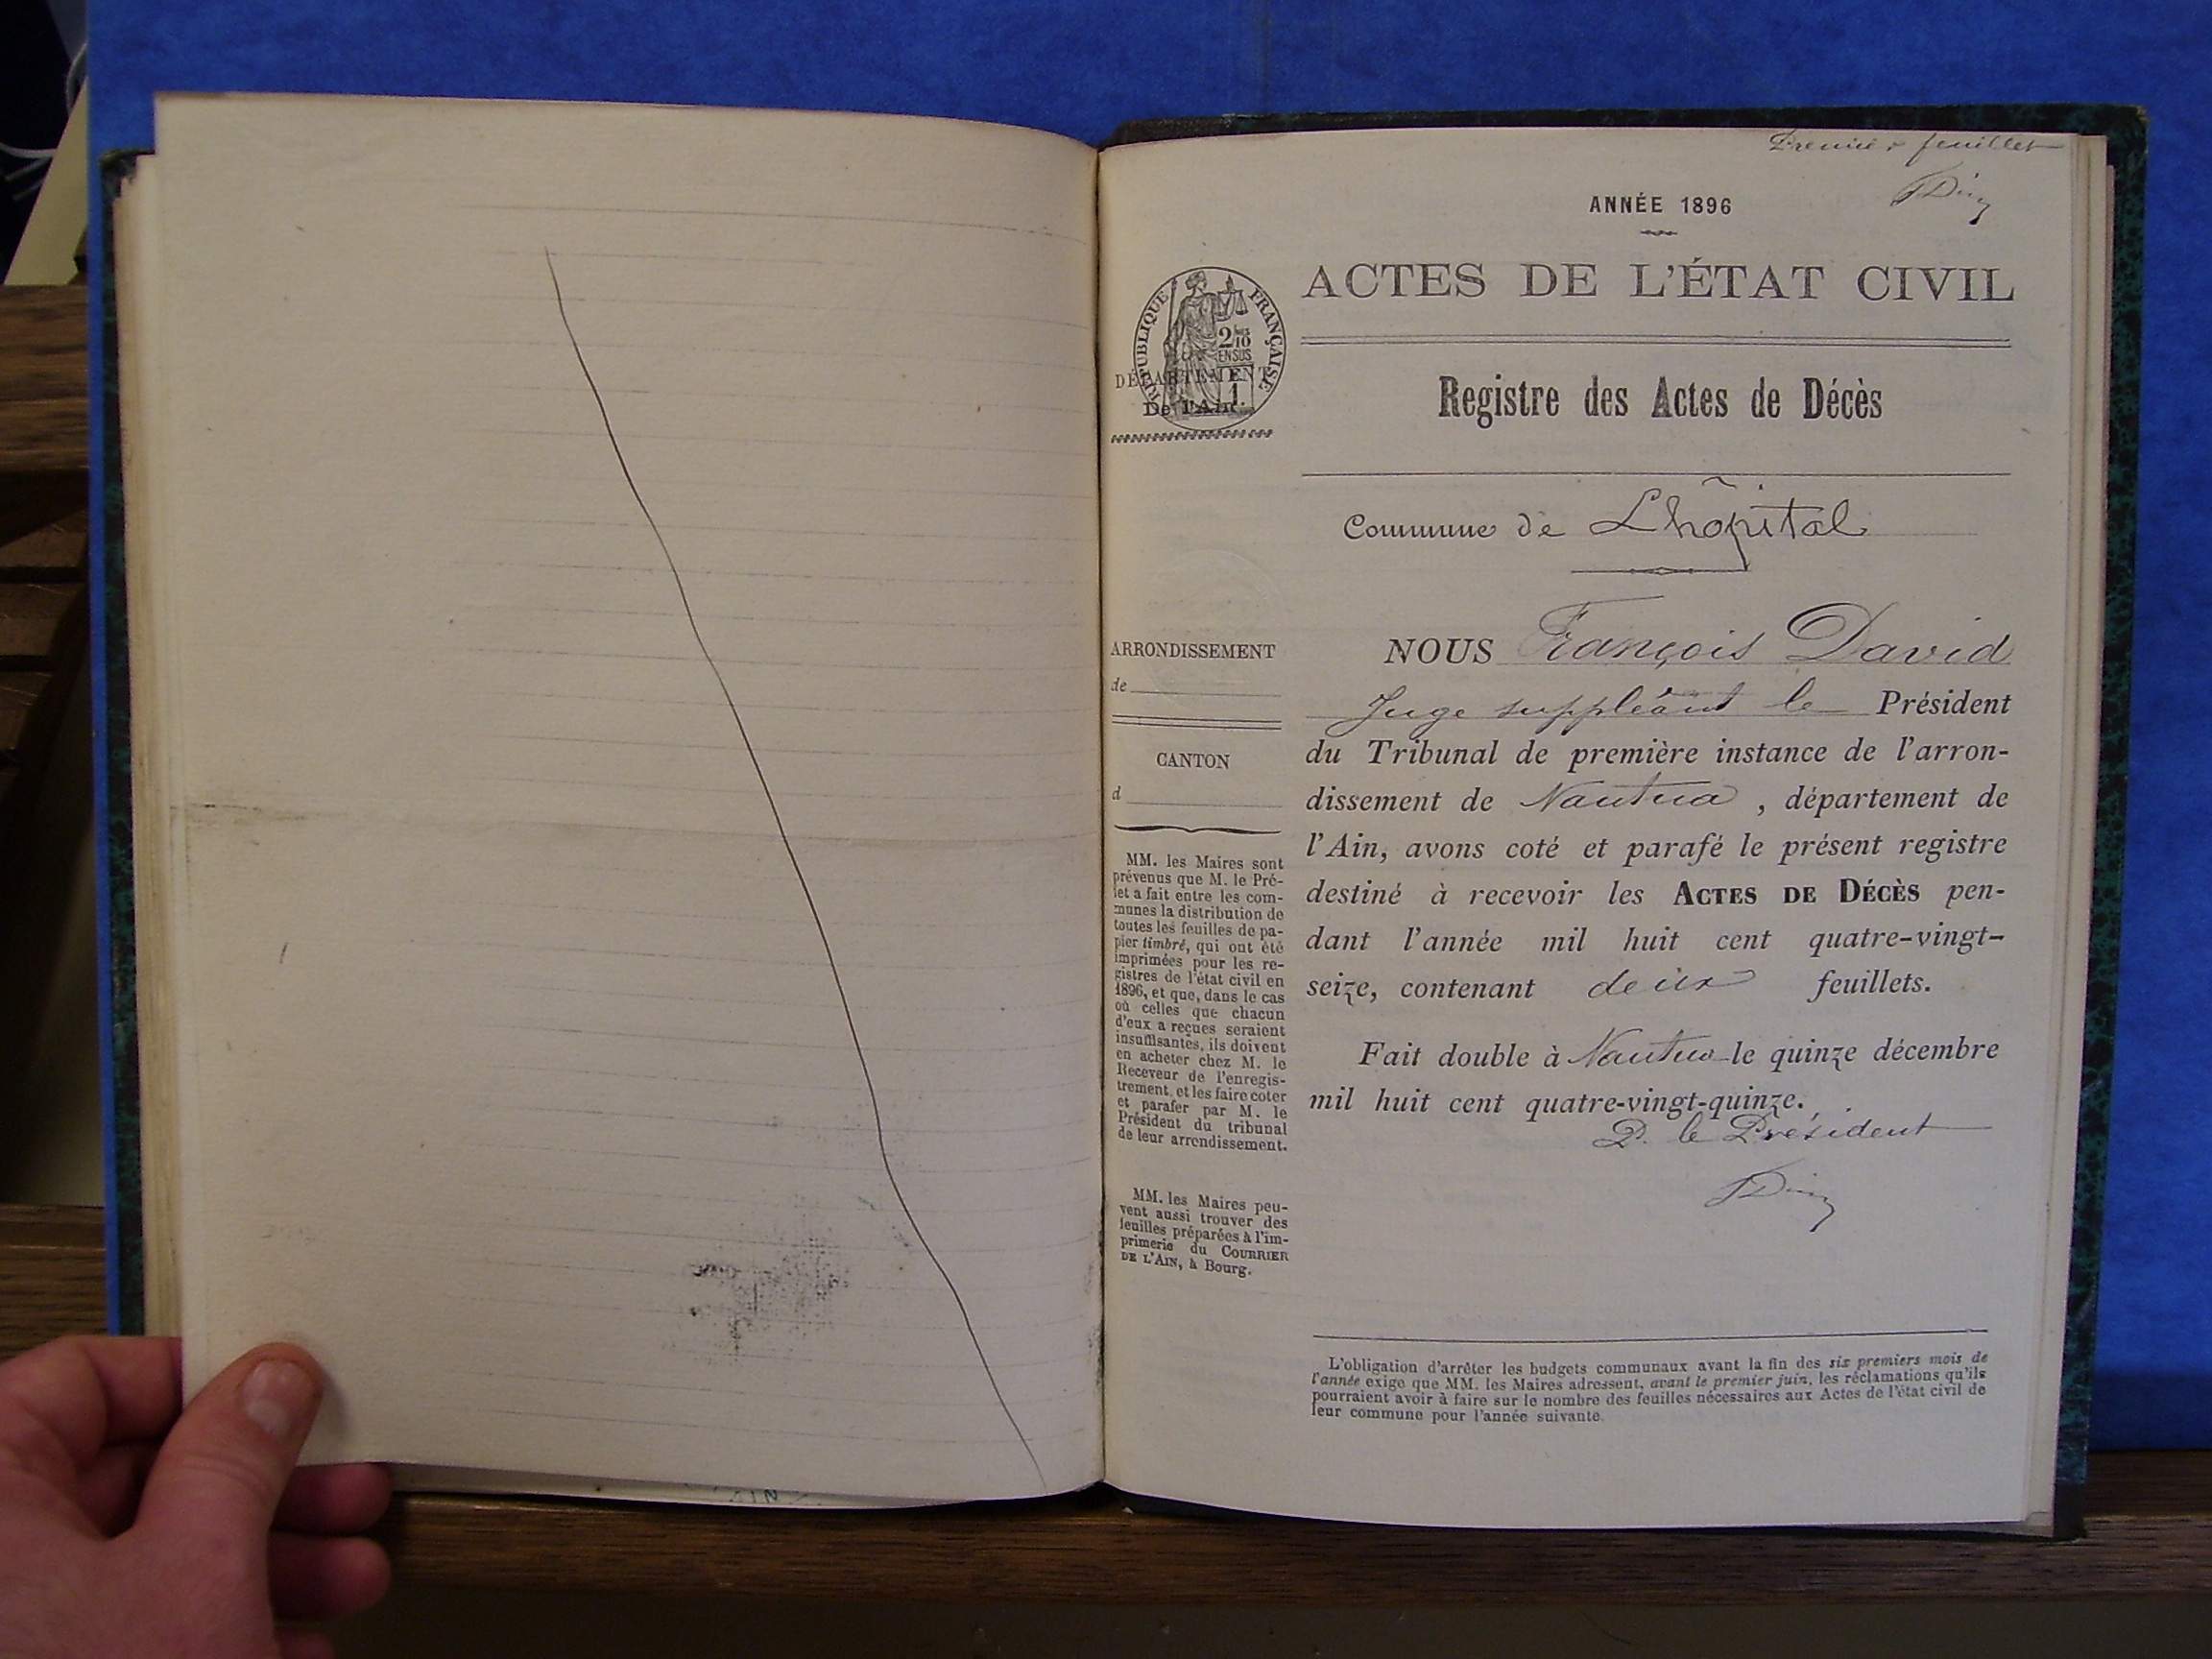 Premier feuillet
ANNÉE 1896
ACTES DE L'ÉTAT CIVIL
RÉPUBLIQUE FRANÇAISE
2/10
EN SUS
1
DÉPARTEMENT
De l'Ain.
Registre des Actes de Décès
Commune de Lhôpital
ARRONDISSEMENT
de
CANTON
d
MM. les Maires sont
prévenus que M. le Pré-
fet a fait entre les com-
munes la distribution de
toutes les feuilles de pa-
pier timbré, qui ont été
imprimées pour les re-
gistres de l'état civil en
1896, et que, dans le cas
où celles que chacun
d'eux a reçues seraient
insuffisantes, ils doivent
en acheter chez M. le
Receveur de l'enregis-
trement, et les faire coter
et parafer par M. le
Président du tribunal
de leur arrondissement.
MM. les Maires peu-
vent aussi trouver des
feuilles préparées à l'im-
primerie du COURRIER
DE L'AIN, à Bourg.
NOUS François David
Juge suppléant le Président
du Tribunal de première instance de l'arron-
dissement de Nantua, département de
l'Ain, avons coté et parafé le présent registre
destiné à recevoir les ACTES DE DÉCÈS pen-
dant l'année mil huit cent quatre-vingt-
seize, contenant deux feuillets.
Fait double à Nantua le quinze décembre
mil huit cent quatre-vingt-quinze.
P. le Président
L'obligation d'arrêter les budgets communaux avant la fin des six premiers mois de
l'année exige que MM. les Maires adressent, avant le premier juin, les réclamations qu'ils
pourraient avoir à faire sur le nombre des feuilles nécessaires aux Actes de l'état civil de
leur commune pour l'année suivante.
AIN